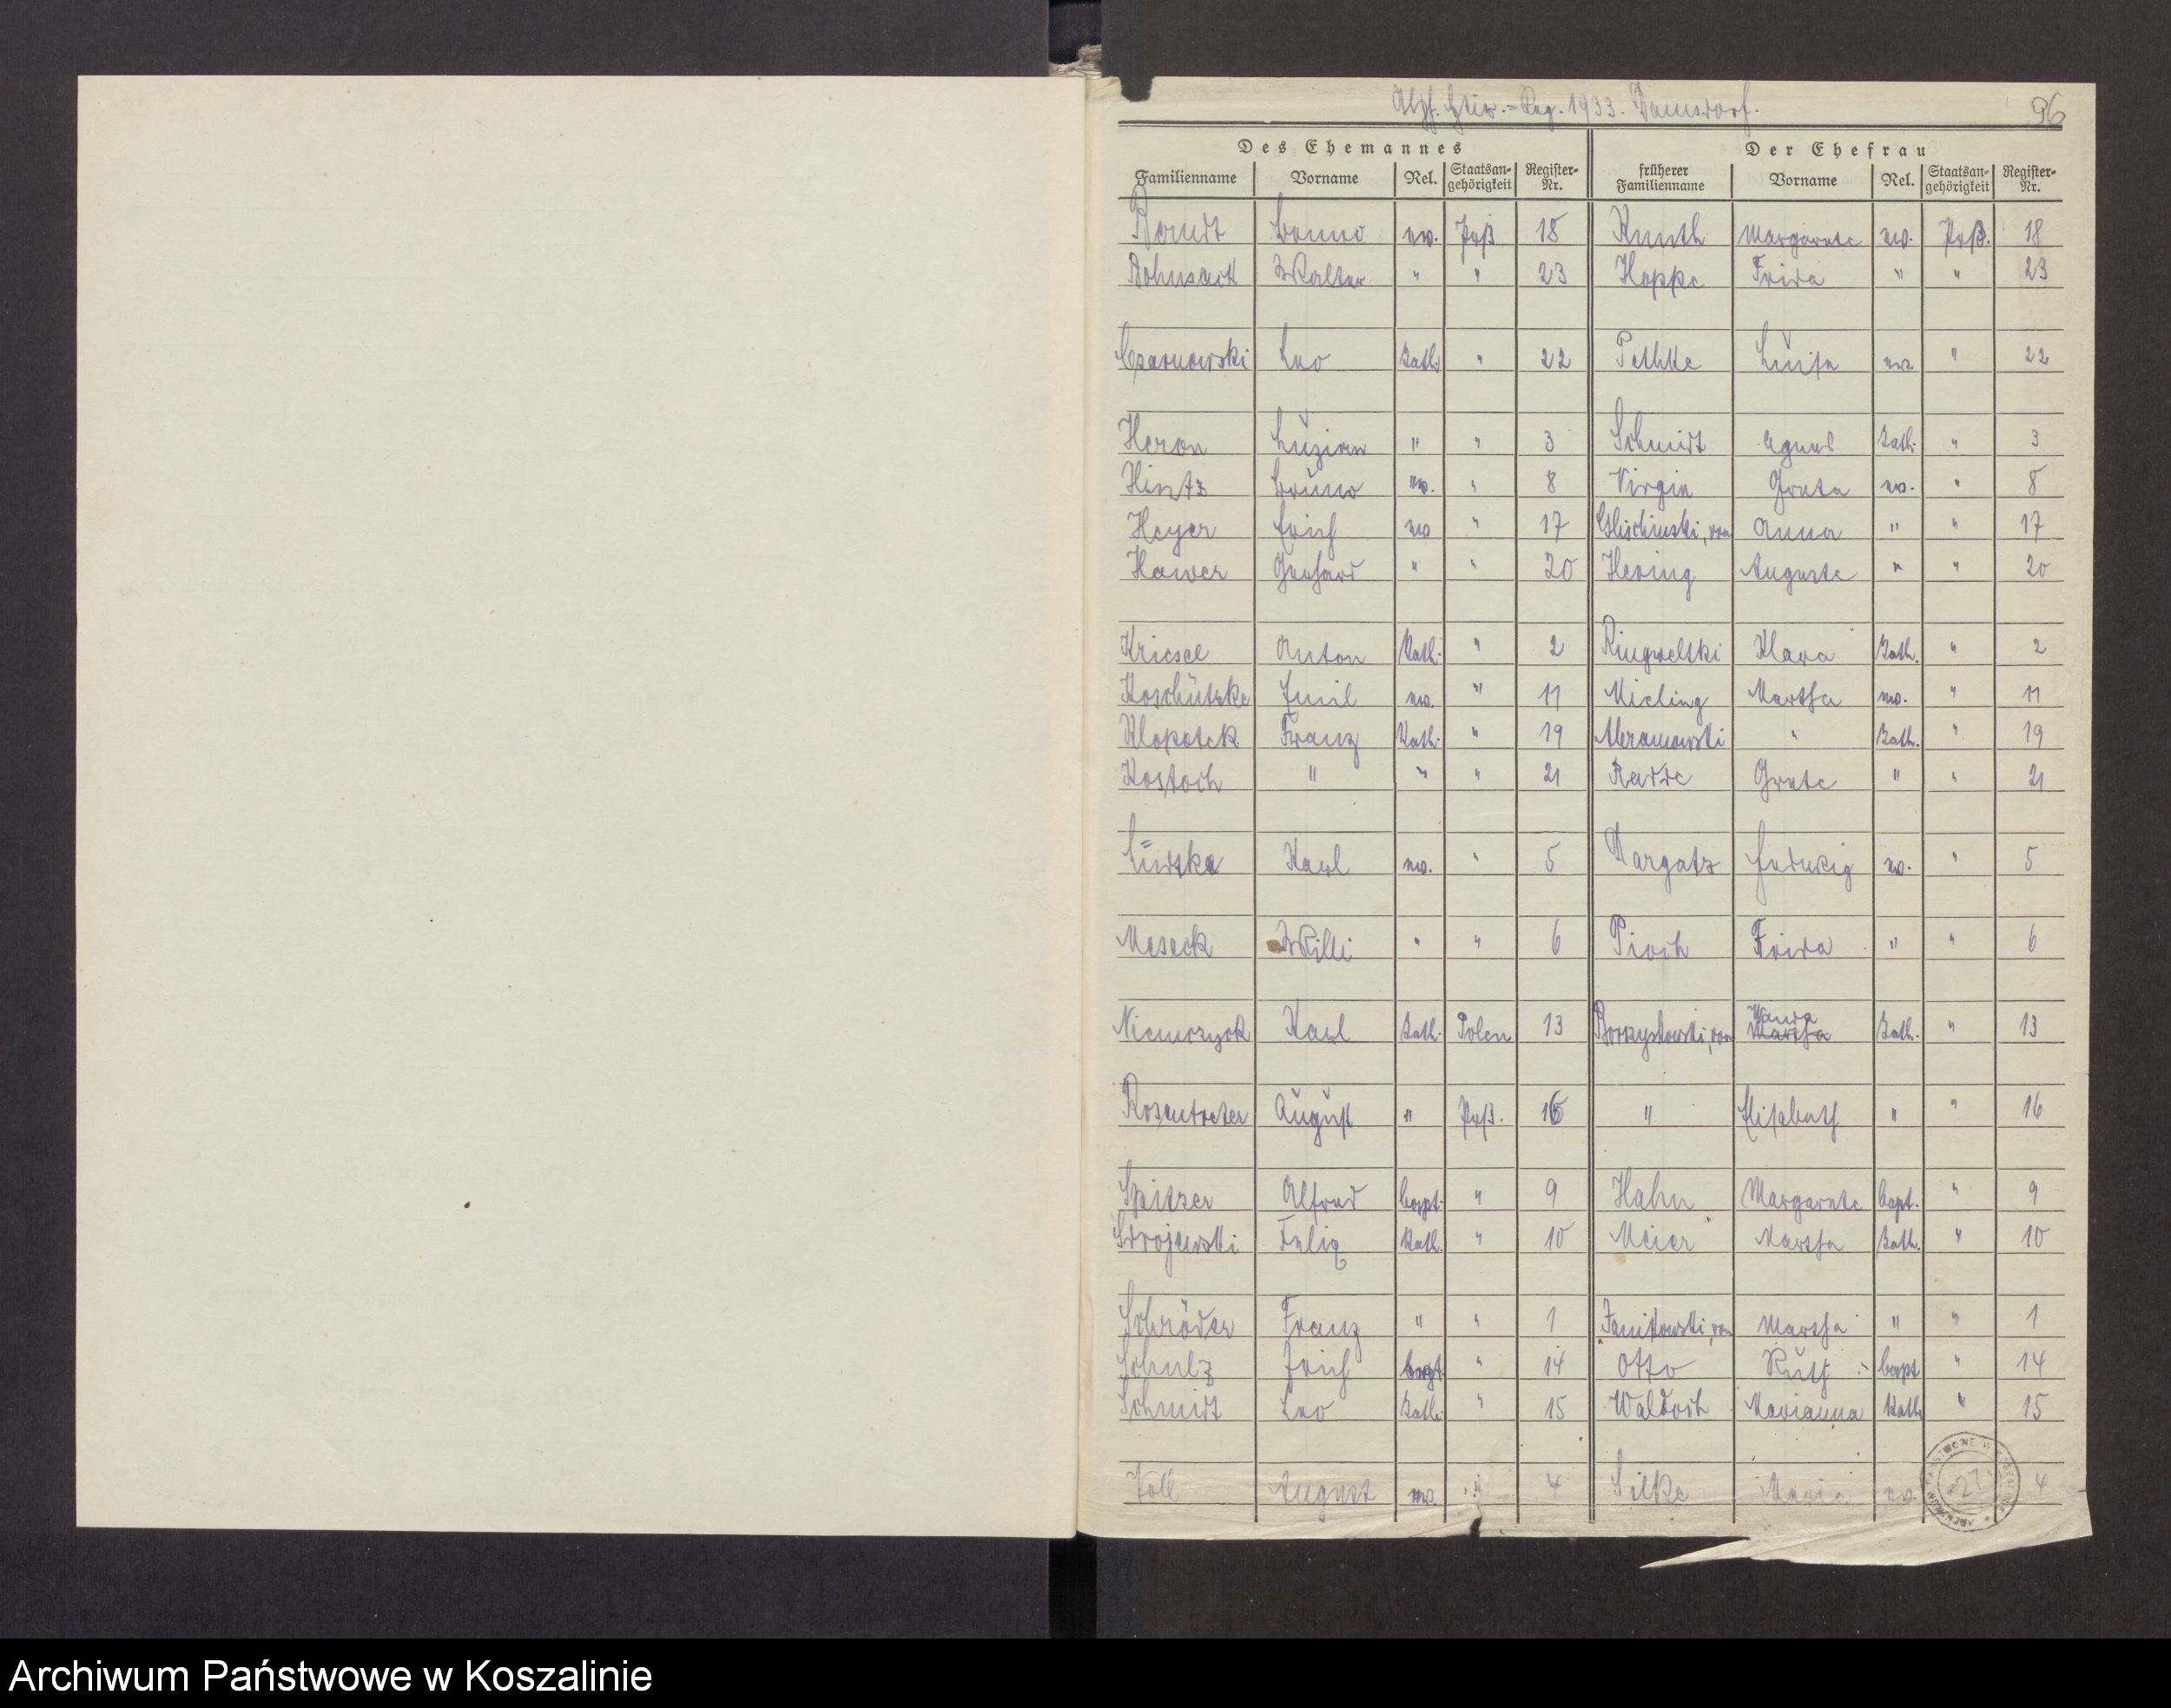 96
Des Ehemannes Der Ehefrau
Familienname Vorname Rel. Staatsan-gehörigkeit Register-Nr. früherer Familienname Vorname Rel. Staatsan-gehörigkeit Register-Nr.
Bruno ev. 18 Knuth Margarete ev. Prß. 18
Bohnsack Walter " " 23 Hoppe Frida " " 23
Czarnowski Leo Kath. " 22 Pethke Luise ev. " 22
Heron Luzian " " 3 Schmidt Agnes Kath. " 3
Hintz Bruno ev. " 8 Virgin Greta ev. " 8
Heyer Erich ev " 17 Anna " " 17
Hawer Gerhard " " 20 Hering Auguste " " 20
Kriesel Anton Kath. " 2 Ringwelski Klara Kath. " 2
Koschützke Emil ev. " 11 Micling Martha ev. " 11
Klopotek Franz Kath. " 19 " Kath. " 19
Kostoch " " " 21 Radde Grete " " 21
Karl ev. " 5 Dargatz Hedwig ev. " 5
Meseck Willi " " 6 Pioch Frida " " 6
Niemczyck Karl Kath. Polen 13 Borzyskowski, von Wanda Kath. " 13
Rosentreter August " Prß. 16 " Elisabeth " " 16
Spitzer Alfred bapt. " 9 Hahn Margarete bapt. " 9
Felix Kath. " 10 Meier Martha Kath. " 10
Schröder Franz " " 1 Janikowski, von Martha " " 1
Schulz Erich bapt. " 14 Otto Ruth bapt " 14
Schmidt Leo Kath. " 15 Waldoch Marianna Kath. " 15
August ev. " 4 Silke Maria ev. 4
Archiwum Państwowe w Koszalinie